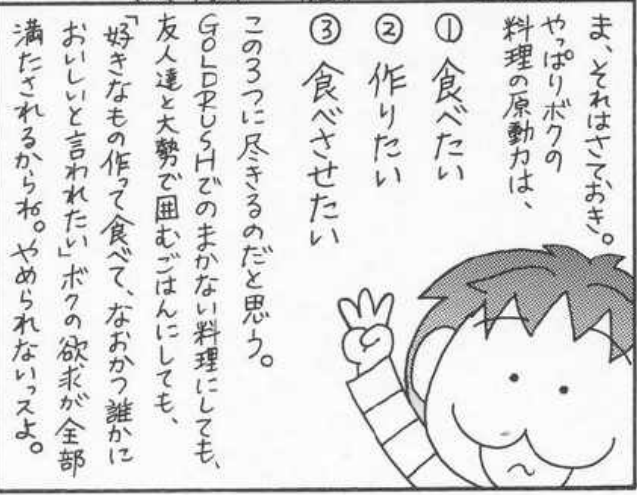 ま、それはさておき。
やっぱりボクの
料理の原動力は、
① 食べたい
② 作りたい
③ 食べさせたい
この3つに尽きるのだと思う。
GOLDRUSHでのまかない料理にしても、
友人達と大勢で囲むごはんにしても、
「好きなもの作って食べて、なおかつ誰かに
おいしいと言われたい」ボクの欲求が全部
満たされるからね。やめられないっスよ。